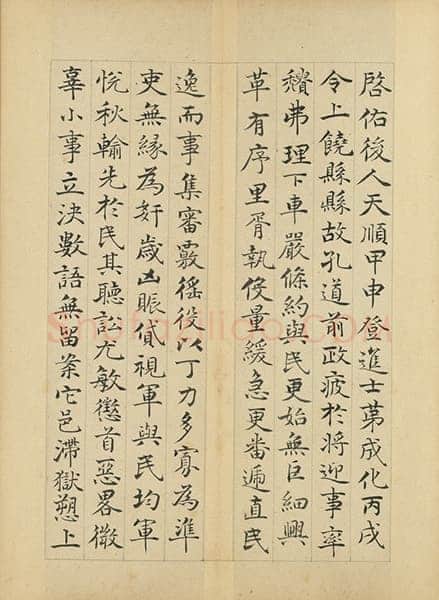 啓佑後人天順甲申登進士第成化丙戌
令上饒縣縣故孔道前政疲於將迎事率
穨弗理下車嚴條約與民更始無巨細興
革有序里胥執役量緩急更番遞直民
逸而事集審覈徭役以丁力多寡為準
吏無緣為奸歲凶賑貸視軍與民均軍
悅秋輸先於民其聽訟尤敏懲首惡畧微
辜小事立決數語無留案它邑滯獄愬上